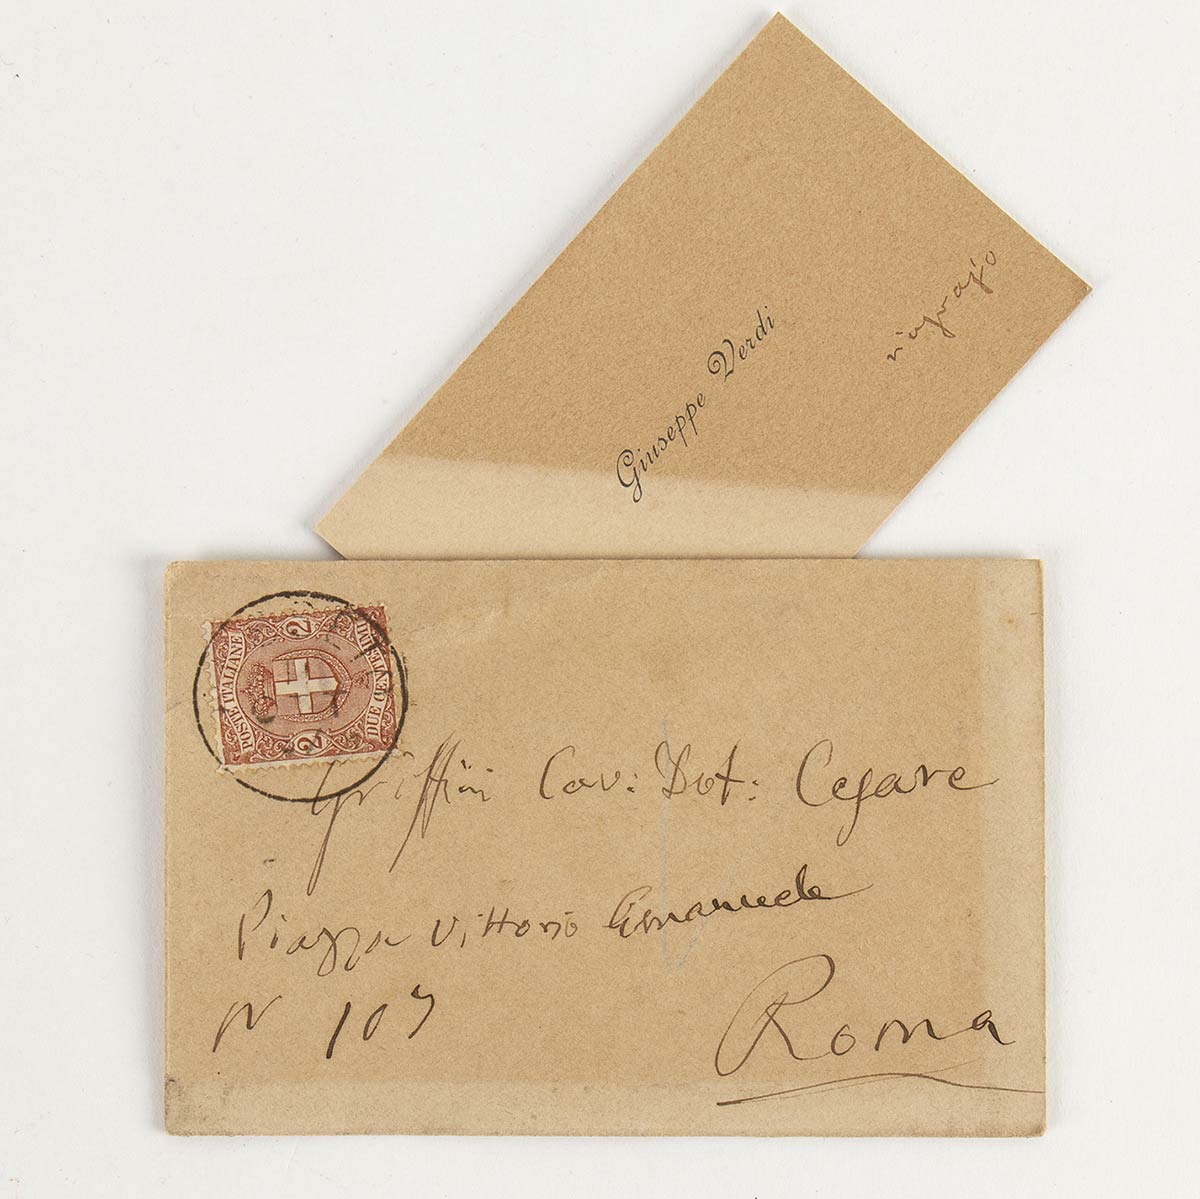 Giuseppe Verdi
ringrazio
POSTE ITALIANE
DUE CENTESIMI
2
2
Griffini Cav: Dot: Cesare
Piazza Vittorio Emanuele
N 107
Roma